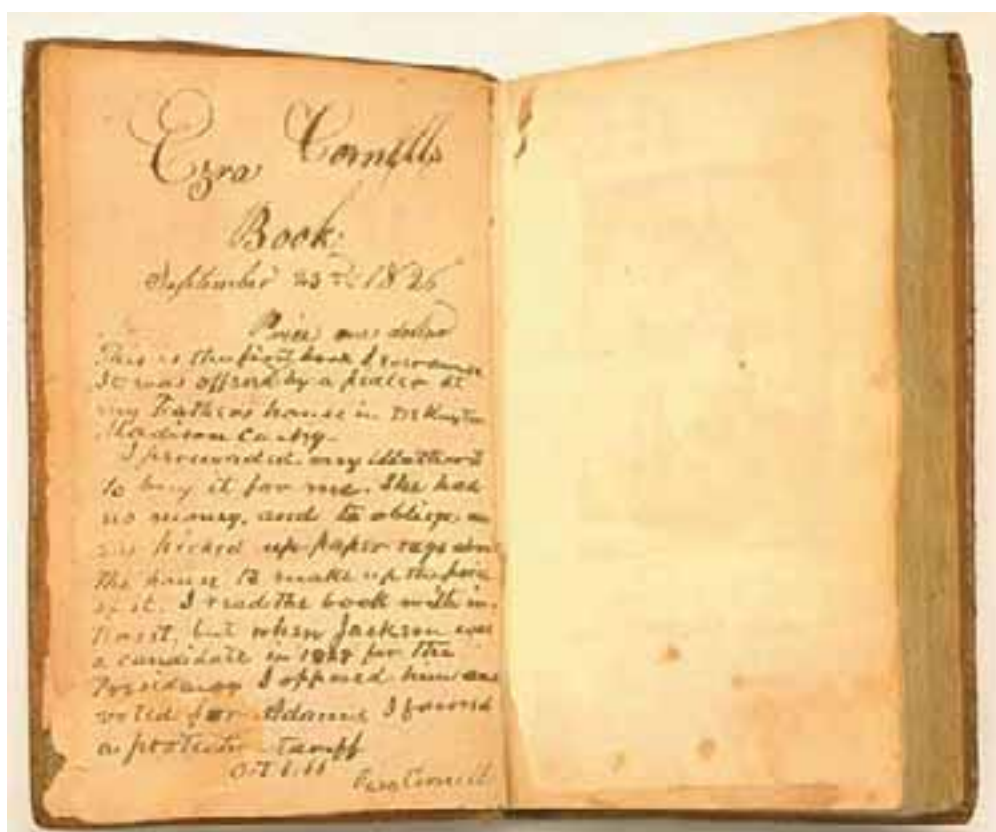 Ezra Cornells
Book.
September 23rd 1826
Price one dollar
This is the first book I ever
It was offered by a at
my Fathers house in
Madison Co. N.y.
I my Mother
to buy it for me. She had
no money, and to oblige me
picked up paper rags
the house to make up the
of it. I read the book with in-
terest, but when Jackson was
a candidate in 1828 for the
Presidency I opposed him and
voted for Adams I favored
a tariff
Ezra Cornell